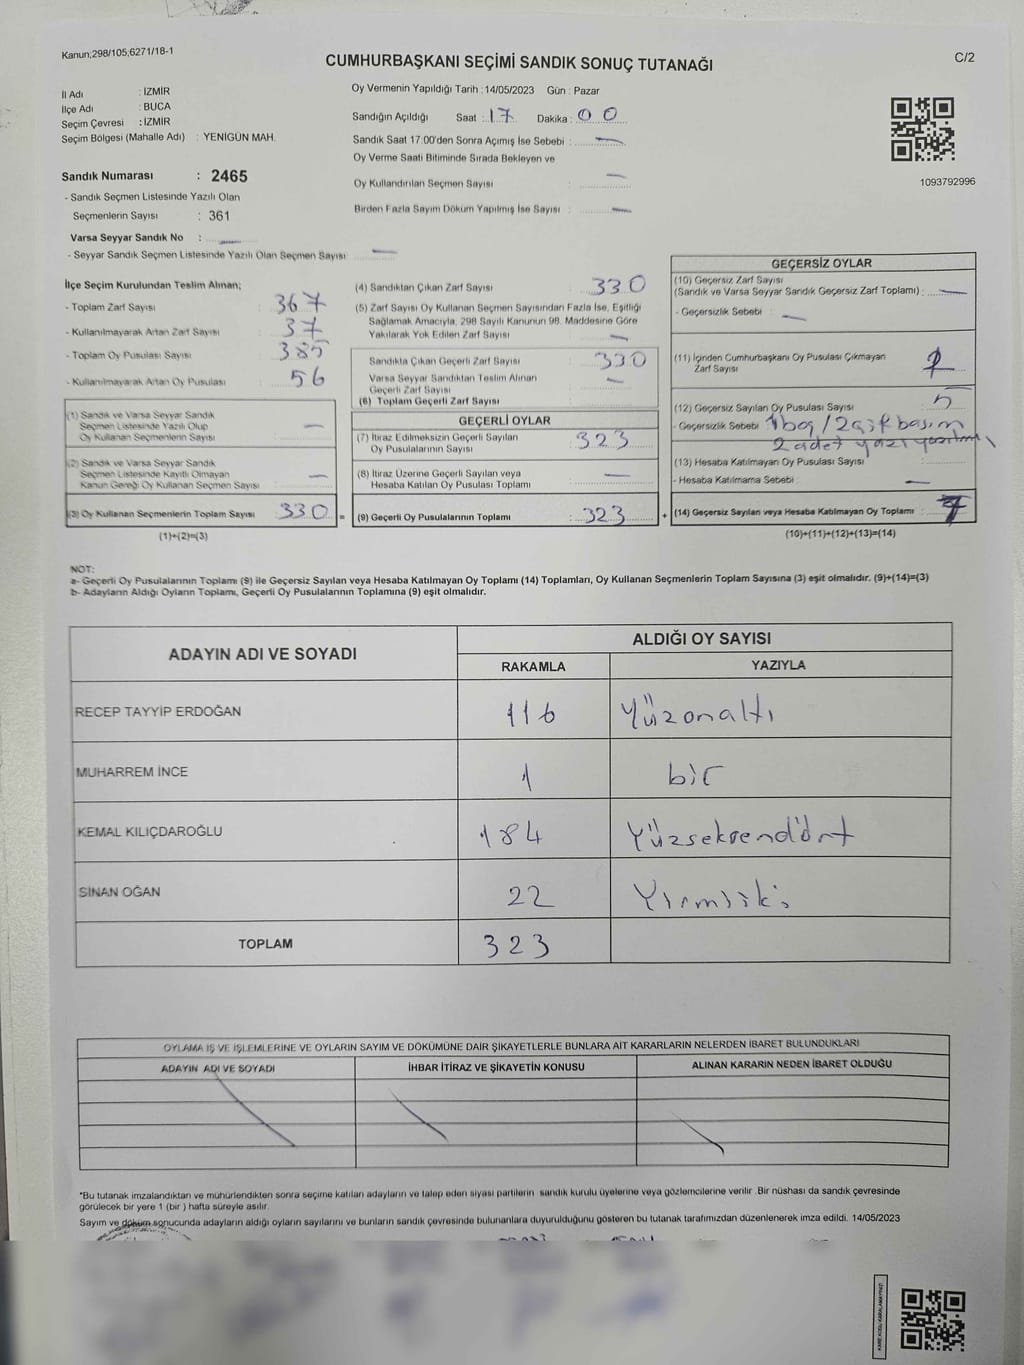 Kanun;298/105,6271/18-1
CUMHURBAŞKANI SEÇİMİ SANDIK SONUÇ TUTANAĞI
C/2
İl Adı : İZMİR
İlçe Adı : BUCA
Seçim Çevresi : İZMİR
Seçim Bölgesi (Mahalle Adı) : YENİGÜN MAH.
Sandık Numarası : 2465
- Sandık Seçmen Listesinde Yazılı Olan
Seçmenlerin Sayısı : 361
Varsa Seyyar Sandık No : —
- Seyyar Sandık Seçmen Listesinde Yazılı Olan Seçmen Sayısı —
Oy Vermenin Yapıldığı Tarih : 14/05/2023 Gün : Pazar
Sandığın Açıldığı Saat : 17 Dakika : 00
Sandık Saat 17.00'den Sonra Açımış İse Sebebi : —
Oy Verme Saati Bitiminde Sırada Bekleyen ve
Oy Kullandırılan Seçmen Sayısı : —
Birden Fazla Sayım Döküm Yapılmış İse Sayısı : —
1093792996
İlçe Seçim Kurulundan Teslim Alınan;
- Toplam Zarf Sayısı : 367
- Kullanılmayarak Artan Zarf Sayısı : 37
- Toplam Oy Pusulası Sayısı : 385
- Kullanılmayarak Artan Oy Pusulası : 56
(1) Sandık ve Varsa Seyyar Sandık
Seçmen Listesinde Yazılı Olup
Oy Kullanan Seçmenlerin Sayısı : —
(2) Sandık ve Varsa Seyyar Sandık
Seçmen Listesinde Kayıtlı Olmayan
Kanun Gereği Oy Kullanan Seçmen Sayısı : —
(3) Oy Kullanan Seçmenlerin Toplam Sayısı : 330 =
(1)+(2)=(3)
(4) Sandıktan Çıkan Zarf Sayısı : 330
(5) Zarf Sayısı Oy Kullanan Seçmen Sayısından Fazla İse, Eşitliği
Sağlamak Amacıyla, 298 Sayılı Kanunun 98. Maddesine Göre
Yakılarak Yok Edilen Zarf Sayısı : —
Sandıkta Çıkan Geçerli Zarf Sayısı : 330
Varsa Seyyar Sandıktan Teslim Alınan
Geçerli Zarf Sayısı : —
(6) Toplam Geçerli Zarf Sayısı :
GEÇERLİ OYLAR
(7) İtiraz Edilmeksizin Geçerli Sayılan
Oy Pusulalarının Sayısı : 323
(8) İtiraz Üzerine Geçerli Sayılan veya
Hesaba Katılan Oy Pusulası Toplamı : —
(9) Geçerli Oy Pusulalarının Toplamı : 323 +
GEÇERSİZ OYLAR
(10) Geçersiz Zarf Sayısı
(Sandık ve Varsa Seyyar Sandık Geçersiz Zarf Toplamı) : —
- Geçersizlik Sebebi : —
(11) İçinden Cumhurbaşkanı Oy Pusulası Çıkmayan
Zarf Sayısı :
(12) Geçersiz Sayılan Oy Pusulası Sayısı : 5
- Geçersizlik Sebebi 1boş/2çift basım
2 adet yazı
(13) Hesaba Katılmayan Oy Pusulası Sayısı :
- Hesaba Katılmama Sebebi : —
(14) Geçersiz Sayılan veya Hesaba Katılmayan Oy Toplamı : 7
(10)+(11)+(12)+(13)=(14)
NOT:
a- Geçerli Oy Pusulalarının Toplamı (9) ile Geçersiz Sayılan veya Hesaba Katılmayan Oy Toplamı (14) Toplamları, Oy Kullanan Seçmenlerin Toplam Sayısına (3) eşit olmalıdır. (9)+(14)=(3)
b- Adayların Aldığı Oyların Toplamı, Geçerli Oy Pusulalarının Toplamına (9) eşit olmalıdır.
ADAYIN ADI VE SOYADI
ALDIĞI OY SAYISI
RAKAMLA YAZIYLA
RECEP TAYYİP ERDOĞAN 116 Yüzonaltı
MUHARREM İNCE 1 bir
KEMAL KILIÇDAROĞLU 184 Yüzseksendört
SİNAN OĞAN 22 Yirmiiki
TOPLAM 323
OYLAMA İŞ VE İŞLEMLERİNE VE OYLARIN SAYIM VE DÖKÜMÜNE DAİR ŞİKAYETLERLE BUNLARA AİT KARARLARIN NELERDEN İBARET BULUNDUKLARI
ADAYIN ADI VE SOYADI İHBAR İTİRAZ VE ŞİKAYETİN KONUSU ALINAN KARARIN NEDEN İBARET OLDUĞU
*Bu tutanak imzalandıktan ve mühürlendikten sonra seçime katılan adayların ve talep eden siyasi partilerin sandık kurulu üyelerine veya gözlemcilerine verilir. Bir nüshası da sandık çevresinde
görülecek bir yere 1 (bir ) hafta süreyle asılır.
Sayım ve döküm sonucunda adayların aldığı oyların sayılarını ve bunların sandık çevresinde bulunanlara duyurulduğunu gösteren bu tutanak tarafımızdan düzenlenerek imza edildi. 14/05/2023